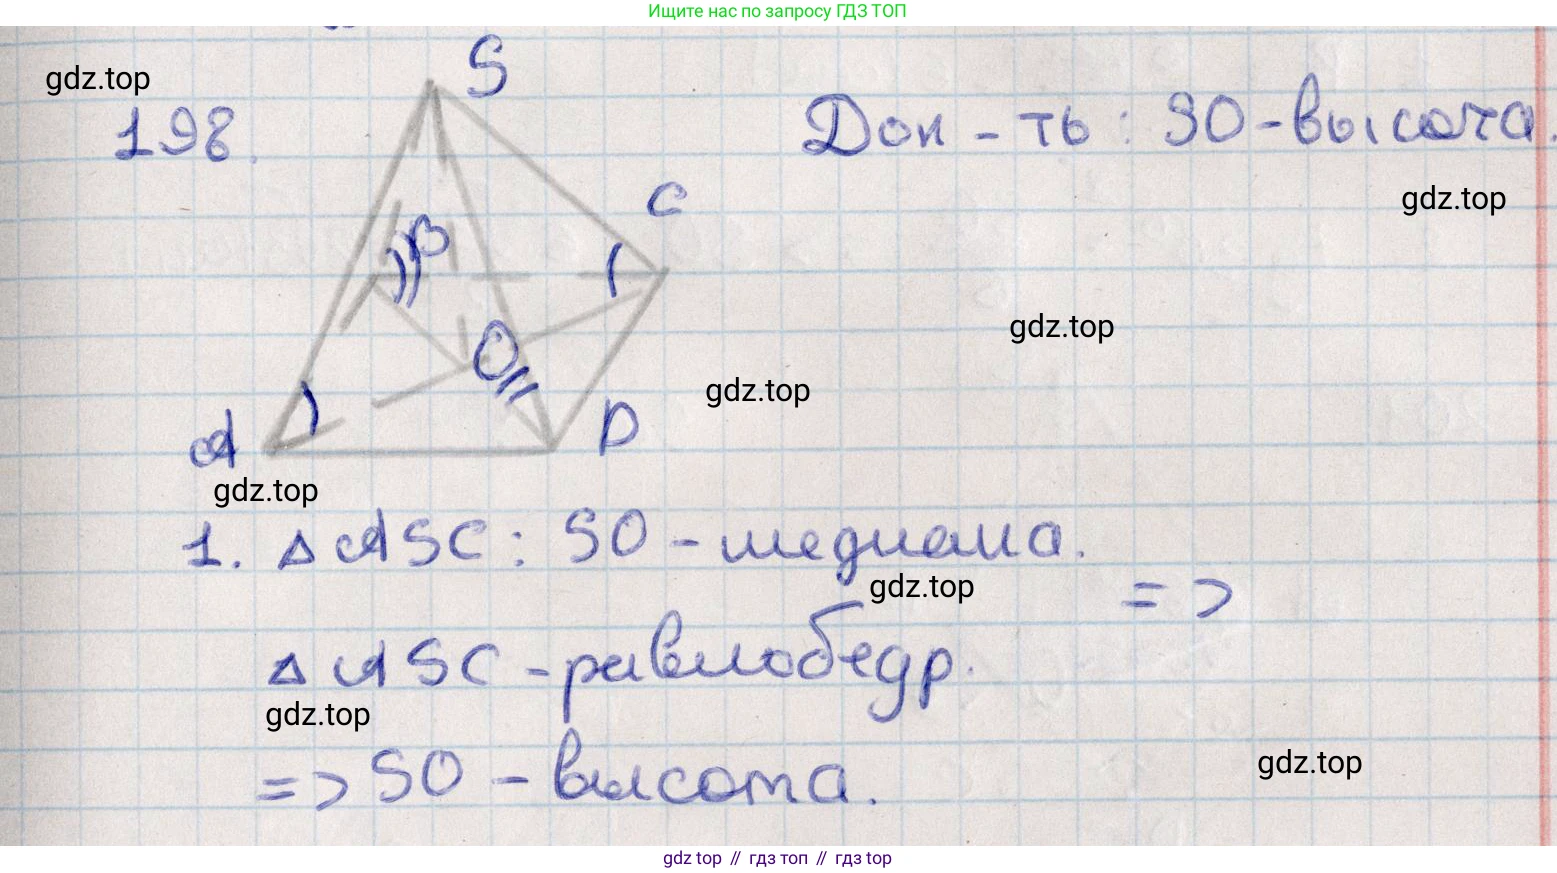 Ищите нас по запросу ГДЗ ТОП
gdz.top
198.
S
Док-ть: SO-высота.
gdz.top
C
B
gdz.top
O
gdz.top
A
D
gdz.top
1. △ ASC: SO - медиана.
gdz.top
=>
△ ASC - равнобедр.
gdz.top
=> SO - высота.
gdz.top
gdz top // гдз топ // гдз top